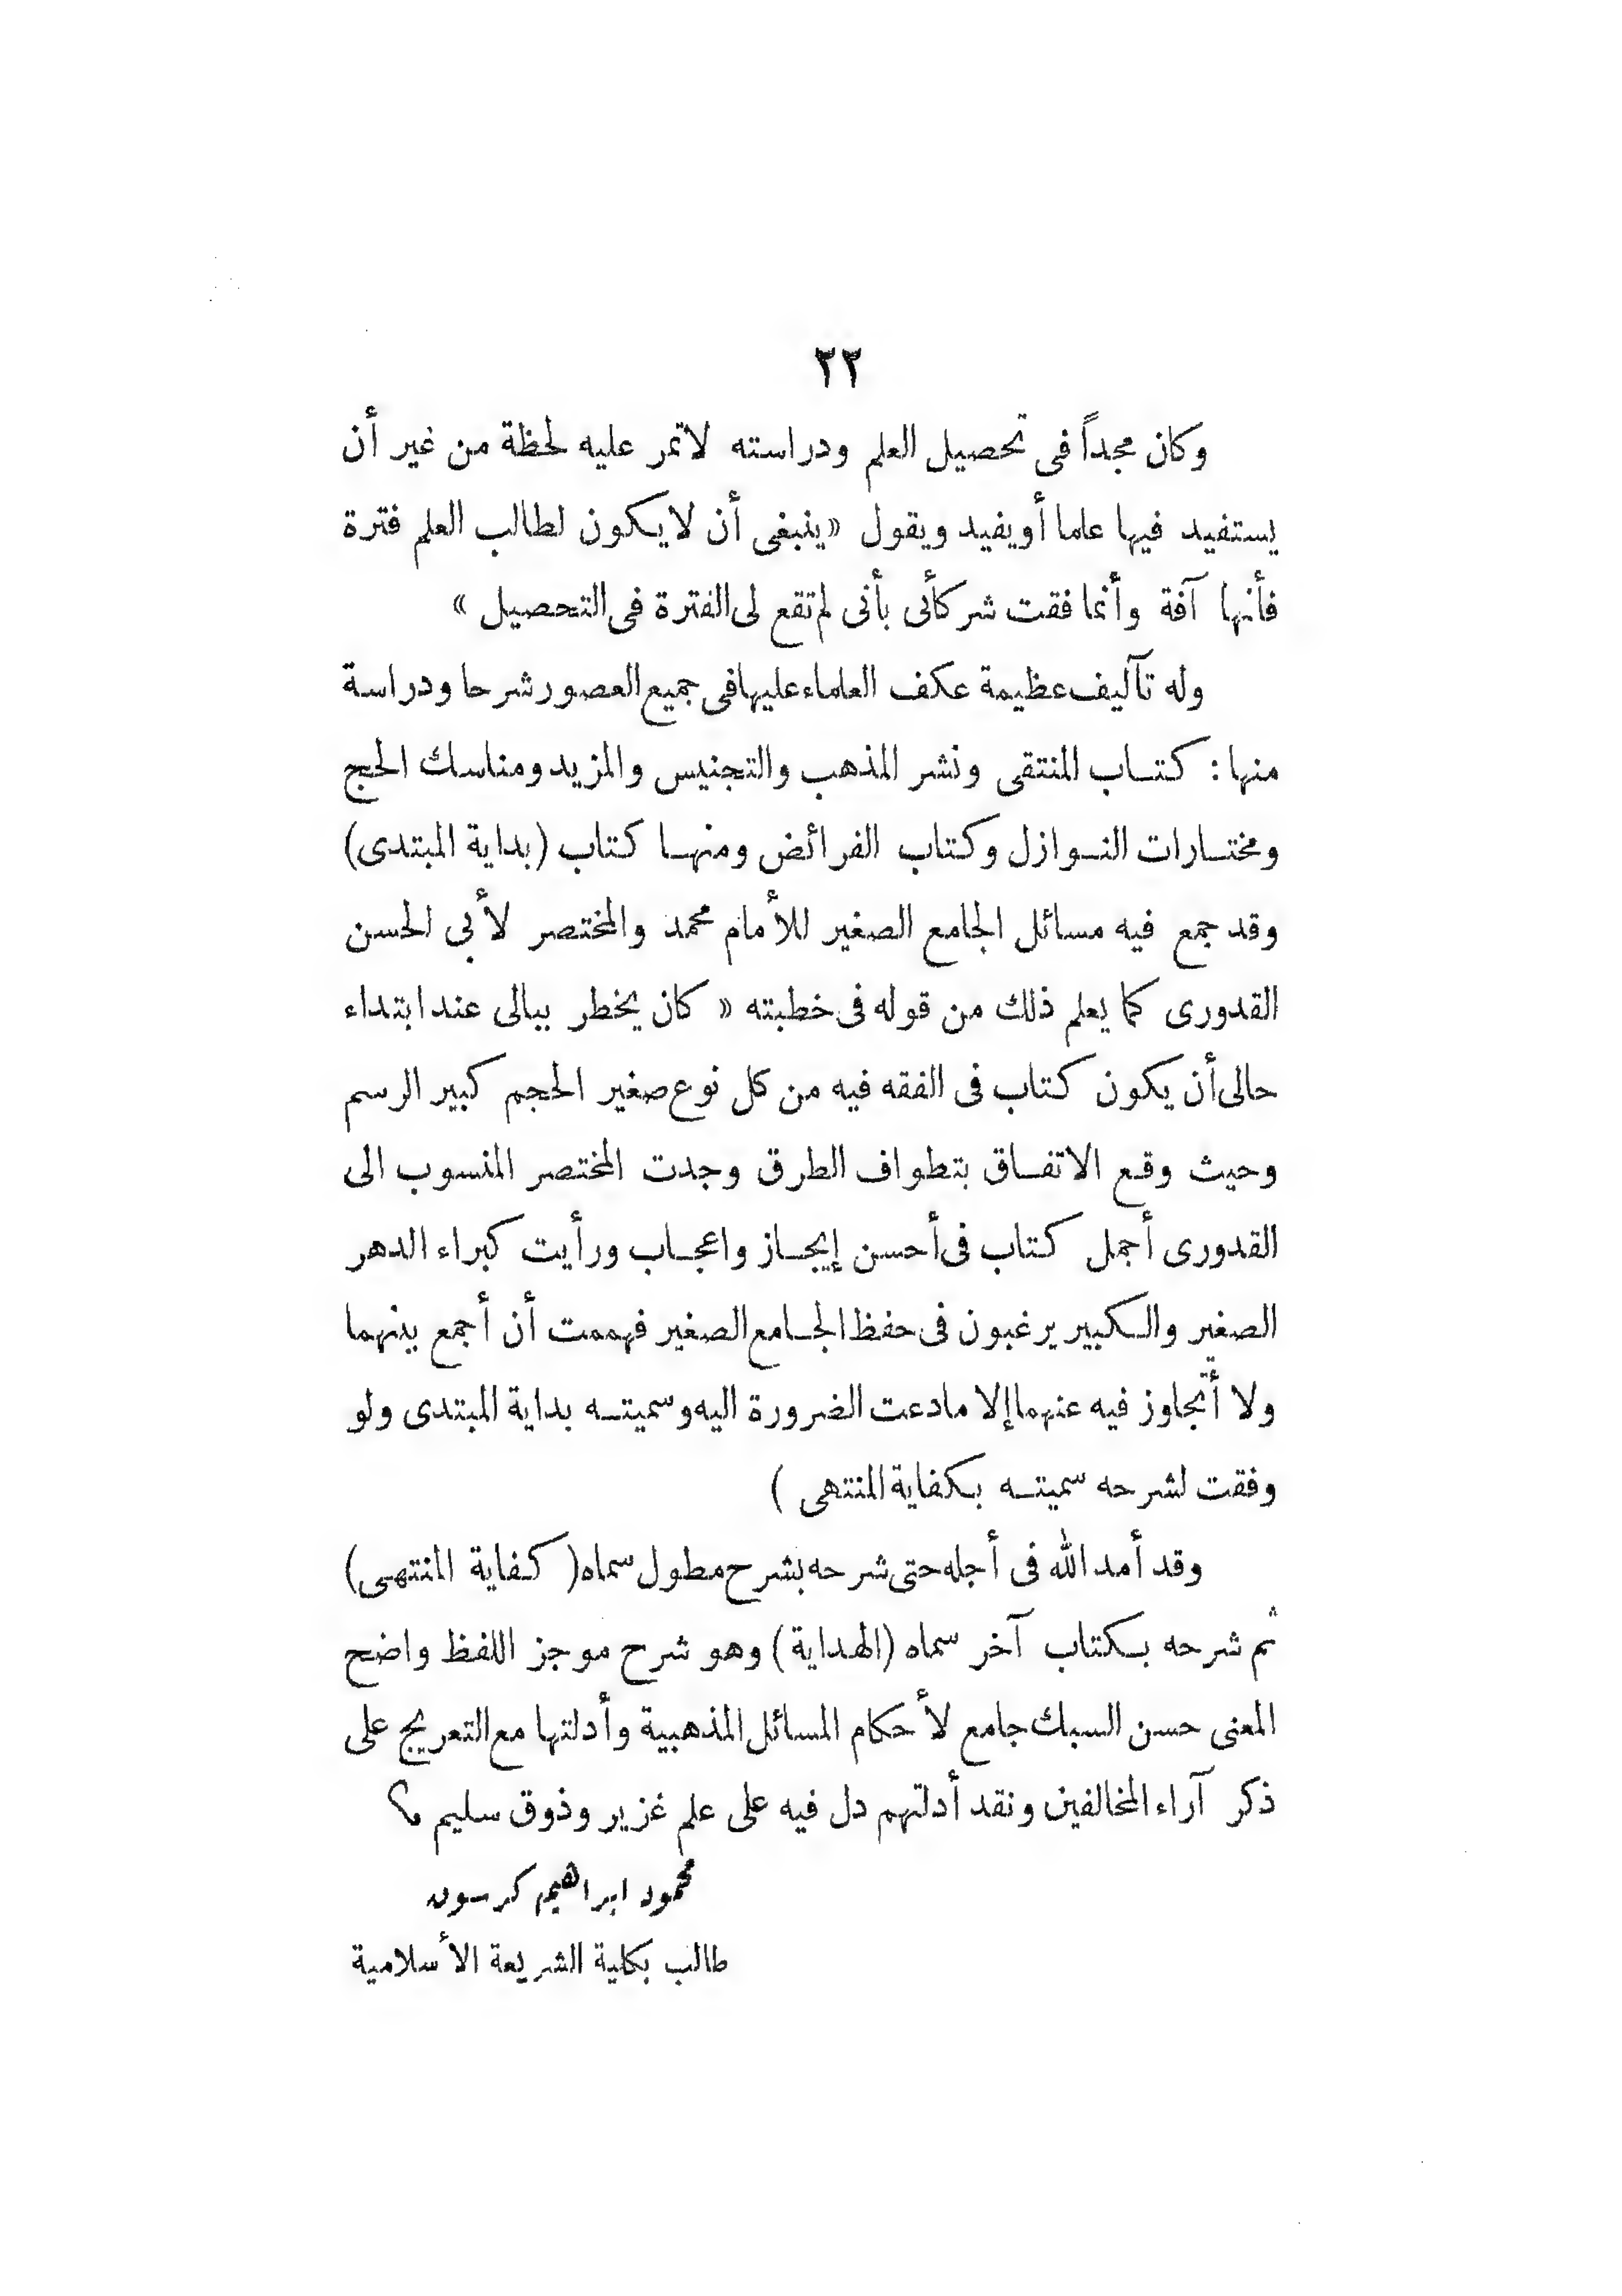 ٢٢
وكان مجداً فى تحصيل العلم ودراسته لاتمر عليه لحظة من غير أن
يستفيد فيها علما أويفيد ويقول «ينبغى أن لايكون لطالب العلم فترة
فأنها آفة وأنما فقت شركأئى بأنى لم تقع لى الفترة فى التحصيل »
وله تآليف عظيمة عكف العلماء عليها فى جميع العصور شرحا ودراسة
منها : كتاب المنتقى ونشر المذهب والتجنيس والمزيد ومناسك الحج
ومختارات النوازل وكتاب الفرائض ومنها كتاب (بداية المبتدى)
وقد جمع فيه مسائل الجامع الصغير للأمام محمد والمختصر لأبى الحسن
القدورى كما يعلم ذلك من قوله فى خطبته « كان يخطر ببالى عند ابتداء
حالى أن يكون كتاب فى الفقه فيه من كل نوع صغير الحجم كبير الرسم
وحيث وقع الاتفاق بتطواف الطرق وجدت المختصر المنسوب الى
القدورى أجمل كتاب فى أحسن إيجاز واعجاب ورأيت كبراء الدهر
الصغير والكبير يرغبون فى حفظ الجامع الصغير فهممت أن أجمع بينهما
ولا أتجاوز فيه عنهما إلا مادعت الضرورة اليه وسميته بداية المبتدى ولو
وفقت لشرحه سميته بكفاية المنتهى )
وقد أمد الله فى أجله حتى شرحه بشرح مطول سماه ( كفاية المنتهى)
ثم شرحه بكتاب آخر سماه (الهداية) وهو شرح موجز اللفظ واضح
المعنى حسن السبك جامع لأحكام المسائل المذهبية وأدلتها مع التعريج على
ذكر آراء المخالفين ونقد أدلتهم دل فيه على علم غزير وذوق سليم
محمود ابراهيم كرسون
طالب بكلية الشريعة الأسلامية